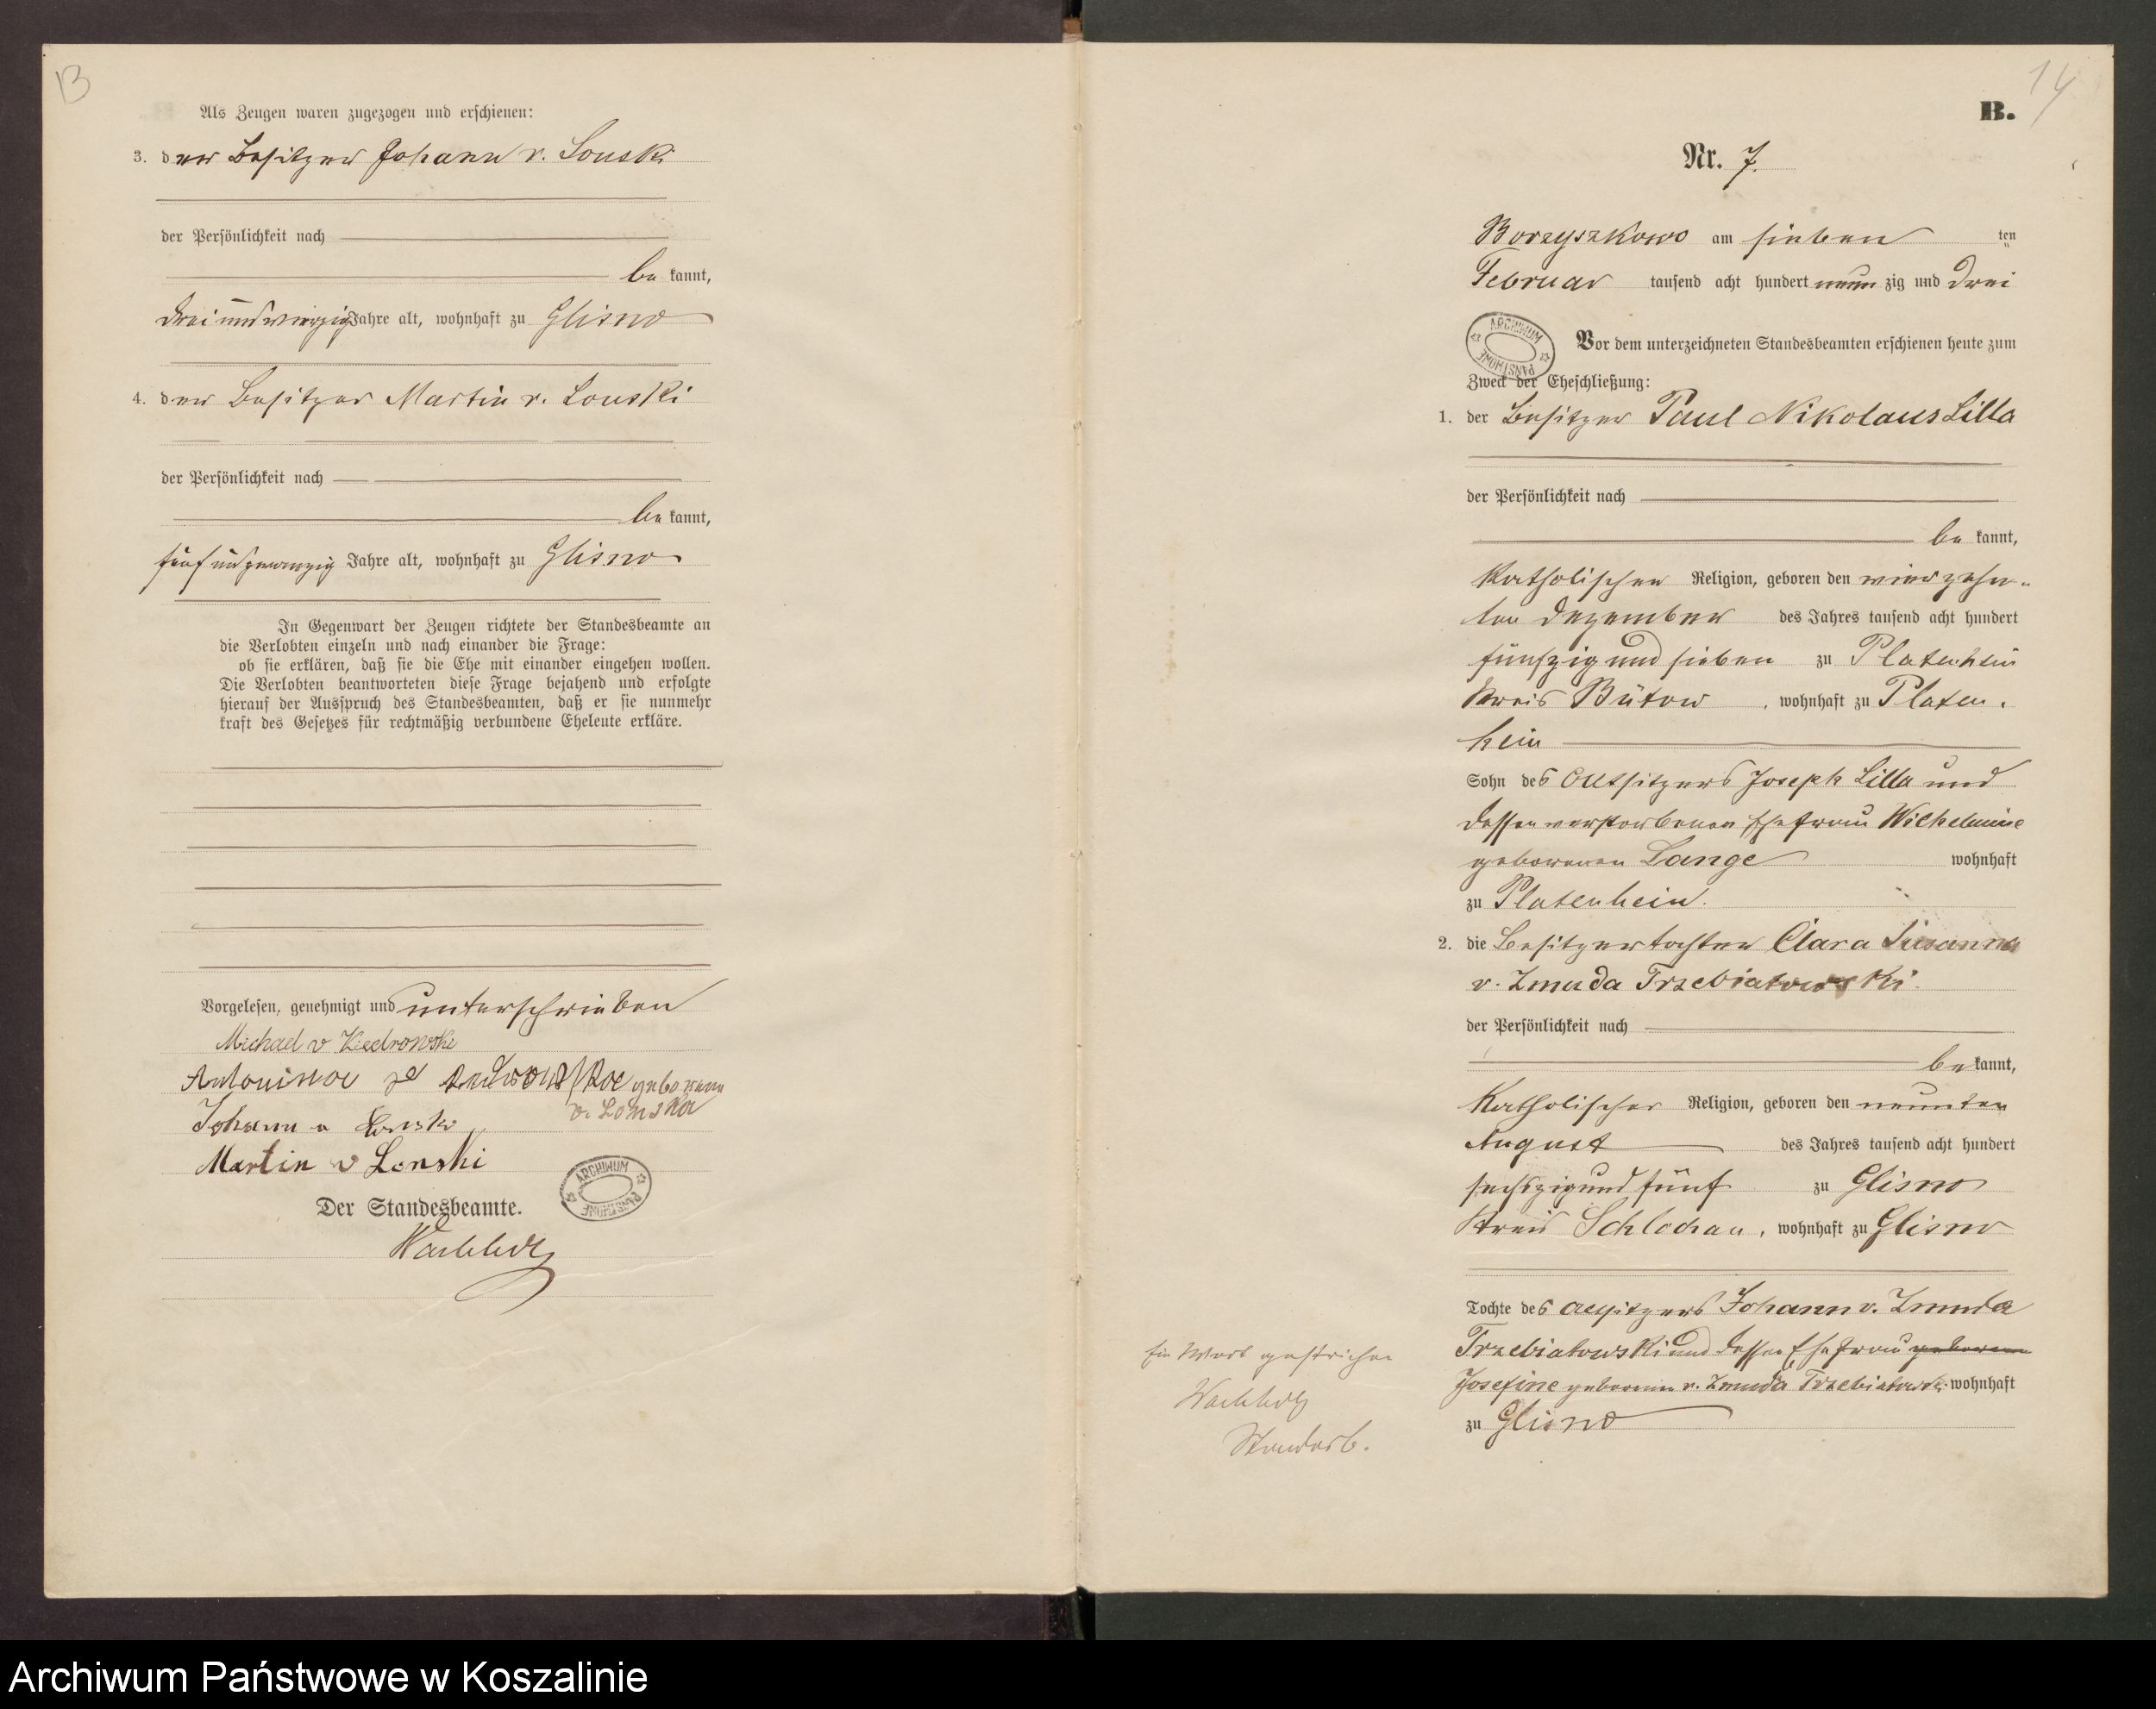 13
Als Zeugen waren zugezogen und erschienen:
3. der Besitzer Johann v. Lonski
der Persönlichkeit nach
be kannt,
drei und vierzig Jahre alt, wohnhaft zu Glisno
4. der Besitzer Martin v. Lonski
der Persönlichkeit nach
be kannt,
fünf und zwanzig Jahre alt, wohnhaft zu Glisno
In Gegenwart der Zeugen richtete der Standesbeamte an
die Verlobten einzeln und nach einander die Frage:
ob sie erklären, daß sie die Ehe mit einander eingehen wollen.
Die Verlobten beantworteten diese Frage bejahend und erfolgte
hierauf der Ausspruch des Standesbeamten, daß er sie nunmehr
kraft des Gesetzes für rechtmäßig verbundene Eheleute erkläre.
Vorgelesen, genehmigt und unterschrieben
Michael v Kiedrowski
Antonina geborene
v. Lonska
Johann v Lonski
Martin v Lonski
ARCHIWUM PAŃSTWOWE
Der Standesbeamte.
14
B.
Nr. 7.
Borzyszkowo am sieben ten
Februar tausend acht hundert neun zig und drei
ARCHIWUM PAŃSTWOWE
Vor dem unterzeichneten Standesbeamten erschienen heute zum
Zweck der Eheschließung:
1. der Besitzer Paul Nikolaus Lilla
der Persönlichkeit nach
be kannt,
katholischen Religion, geboren den vierzehn-
ten Dezember des Jahres tausend acht hundert
fünfzig und sieben zu Platenhein
Kreis Bütow, wohnhaft zu Platen-
hein
Sohn des Altsitzers Joseph Lilla und
dessen verstorbenen Ehefrau Wilhelmine
geborenen Lange wohnhaft
zu Platenhein.
2. die Besitzertochter Clara Susanna
v. Zmuda Trzebiatowski.
der Persönlichkeit nach
be kannt,
katholischer Religion, geboren den neunten
August des Jahres tausend acht hundert
sechszig und fünf zu Glisno
Kreis Schlochau, wohnhaft zu Glisno
Tochte des Altsitzers Johann v. Zmuda
Trzebiatowski und dessen Ehefrau geborene
Josefine geborene v. Zmuda Trzebiatowski wohnhaft
zu Glisno
Ein Wort gestrichen
Standesb.
Archiwum Państwowe w Koszalinie